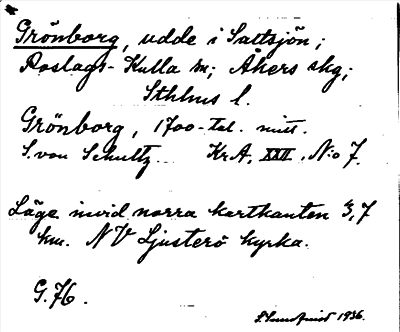 Grönborg, udde i Saltsjön;
Roslags-Kulla sn; Åkers skg;
Sthlms l.
Grönborg, 1700-tal. mitt.
S. von Schultz. KrA, XXII, No 7.
Läge invid norra kartkanten 3,7
km. NV Ljusterö kyrka.
G.76.
1936.